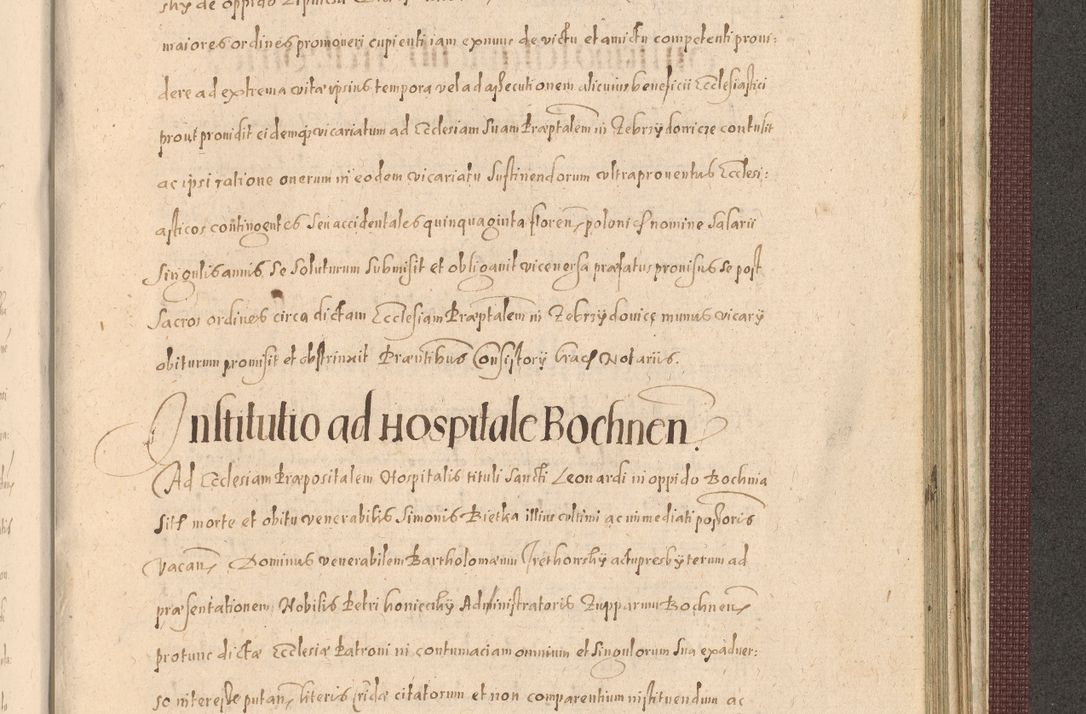 shÿ de oppido
maiores ordines promoueri cupienti iam exnunc de victu et amictu competenti proui:
dere ad extrema vitæ ipsius tempora vel ad assecutionem alicuius beneficii Ecclesiastici
prout prouidit eidemq; vicariatum ad Ecclesiam suam Præptalem in Zebrzÿdowicze contulit
ac ipsi ratione onerum in eodem vicariatu sustinendorum vltra prouentus Ecclesi:
asticos contingentes seu accidentales quinquaginta floren polonic nomine Salarii
Singulis annis, se soluturum submisit et obligauit vice versa præfatus prouisus se post
Sacros ordines circa dictam Ecclesiam Præptalem in Zebrzÿdowicze munus vicarÿ
obiturum promisit et obstrinxit Præntibus Consistorÿ Notariis.
Institutio ad Hospitale Bochnen
Ad Ecclesiam Præpositalem Hospitalis tituli Sancti Leonardi in oppido Bochnia
sitt morte et obitu venerabilis Simonis Bietka illius vltimi ac immediati possoris
Vacan Dominus venerabilem Bartholomæum actu presbÿterum ad
præsentationem Nobilis Petri Administratoris Zupparum Bochnen
pro tunc dictæ Ecclesiæ Patroni in contumaciam omnium et Singulorum sua ex aduer:
so interesse putan literis citatorum et non comparentium instituendum ac